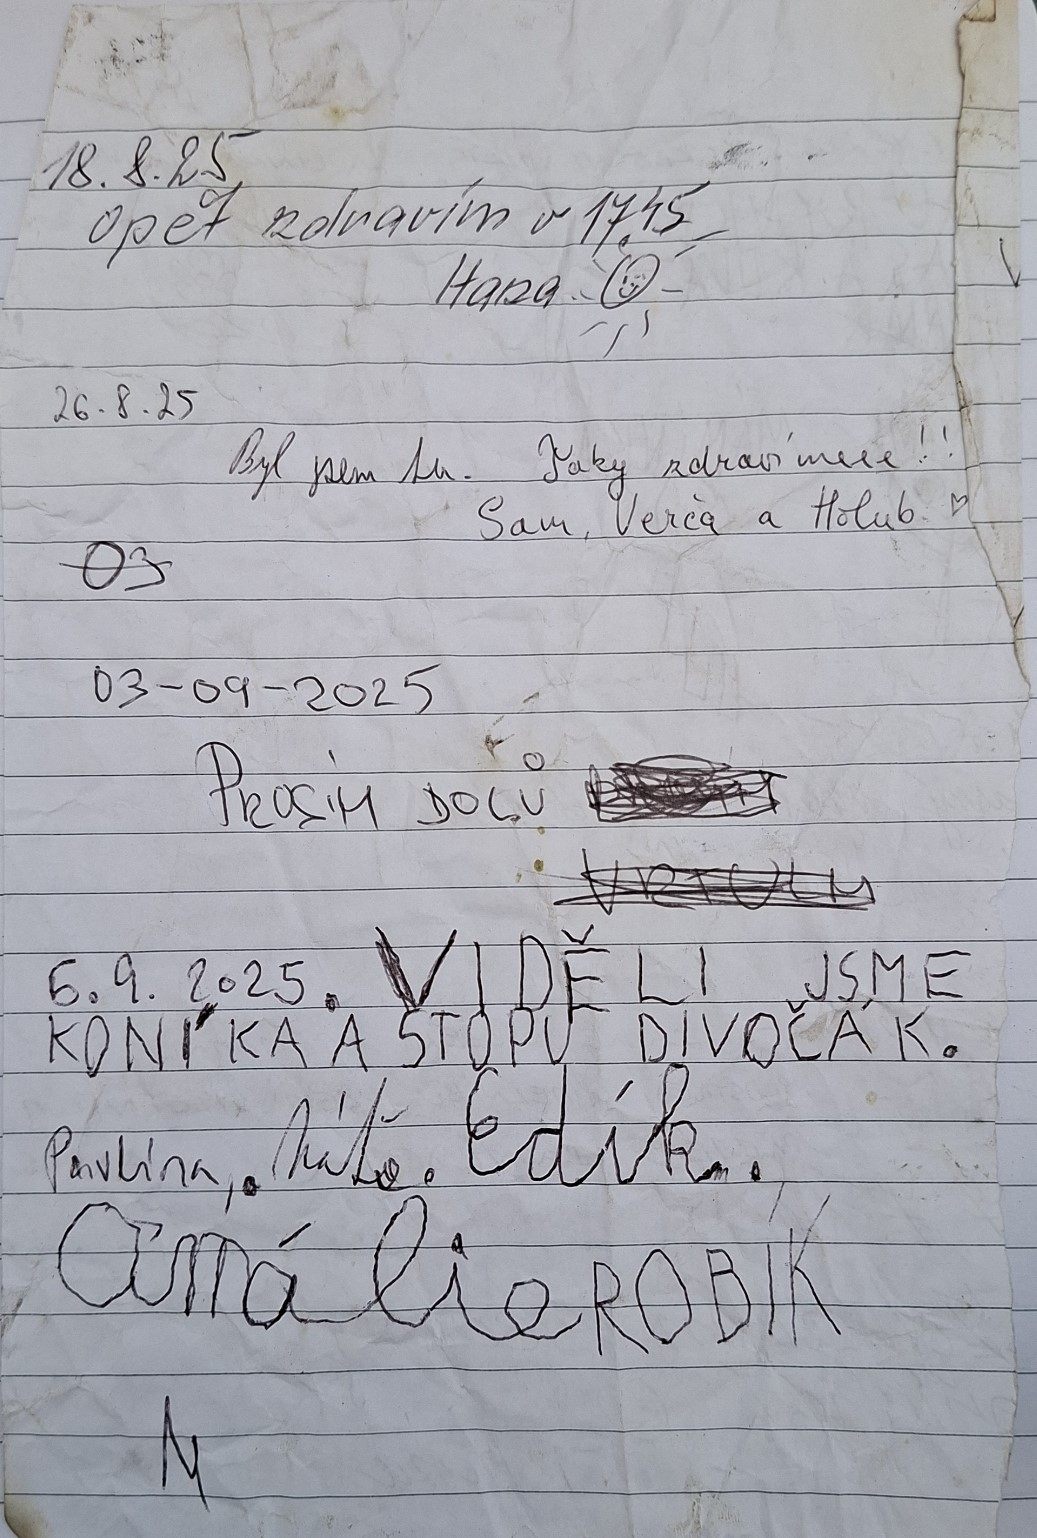 18.8.25
opět zdravím v 17.45
Hana
26.8.25
Byl jsem tu. Taky zdravímeee!!
Sam, Verča a Holub. ♡
03
03-09-2025
PROSÍM DOLŮ
6.9.2025. VIDĚLI JSME
KONÍKA A STOPU DIVOČÁK.
Pavlína, . Edík.
Amálie ROBÍK